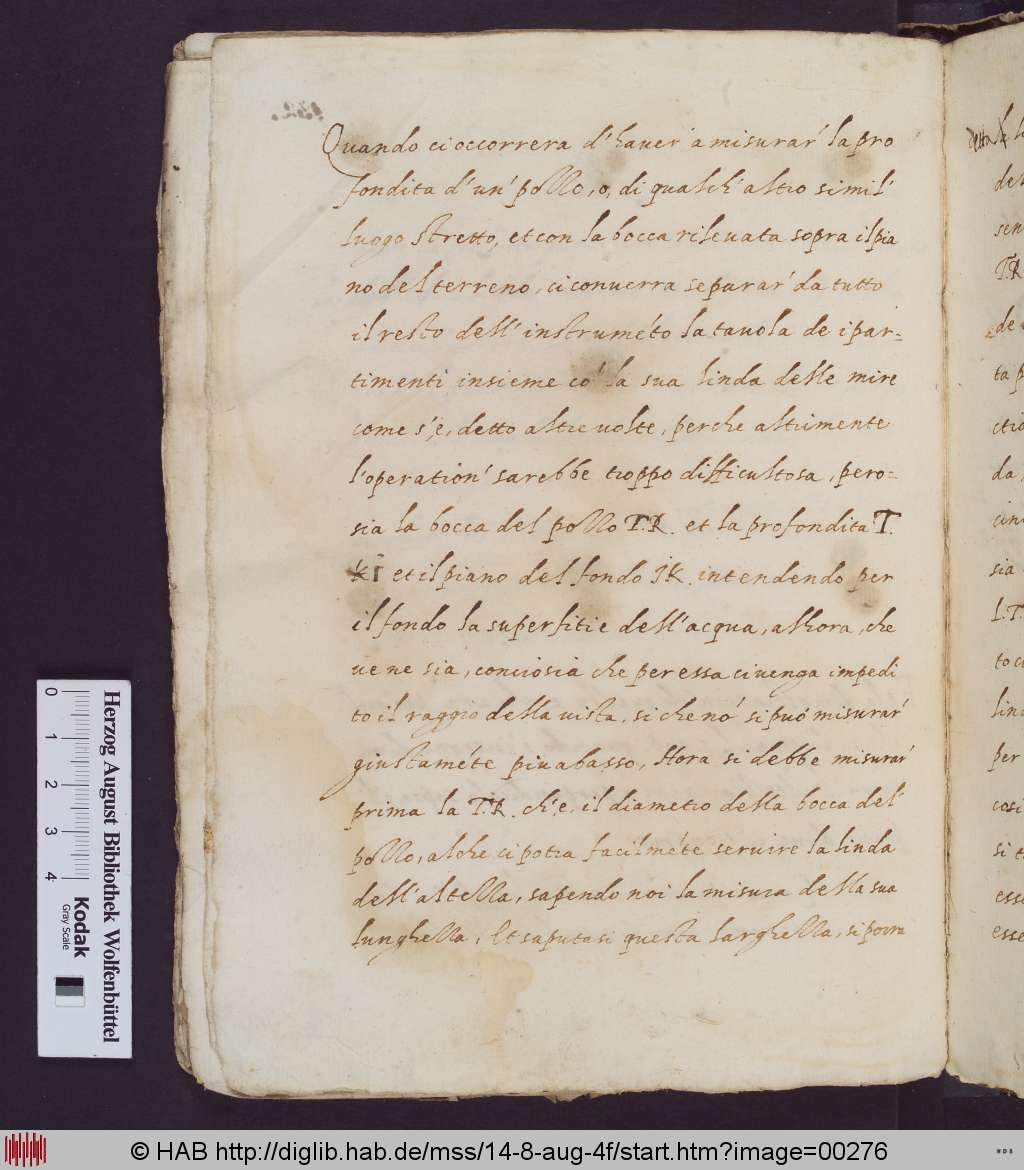 Quando ci occorrera d'hauer' a misurar' la pro
fondita d'un' pozzo, o, di qualch' altro simil'
luogo stretto, et con la bocca rileuata sopra il pia
no del terreno, ci conuerra separar' da tutto
il resto dell' instrumēto la tauola de i par-
timenti insieme cō la sua linda delle mire
come s'è, detto altre uolte, perche altrimente
l'operation' sarebbe troppo difficultosa, pero-
sia la bocca del pozzo T.R. et la profondita T.
I et il piano del fondo IK. intendendo per
il fondo la superfitie dell'acqua, allhora, che
ue ne sia, conciosia che per essa ci uenga impedi
to il raggio della uista, si che nō si può misurar'
giustamēte piu abasso, Hora si debbe misurar'
prima la T.R. ch'è, il diametro della bocca del'
pozzo, al che ci potra facilmēte seruire la linda
dell'altezza, sapendo noi la misura della sua
lunghezza, Et saputasi questa larghezza, si potra
detta
del
sen
T.R
de
ta p
da
cin
sia
L.T.
to c
lind
per
cosi
si t
esse
esse
0 1 2 3 4
Herzog August Bibliothek Wolfenbüttel
Kodak
Gray Scale
© HAB http://diglib.hab.de/mss/14-8-aug-4f/start.htm?image=00276